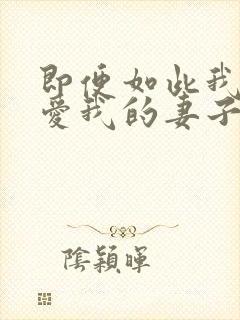 即便如此我
愛我的妻子
陰穎暉